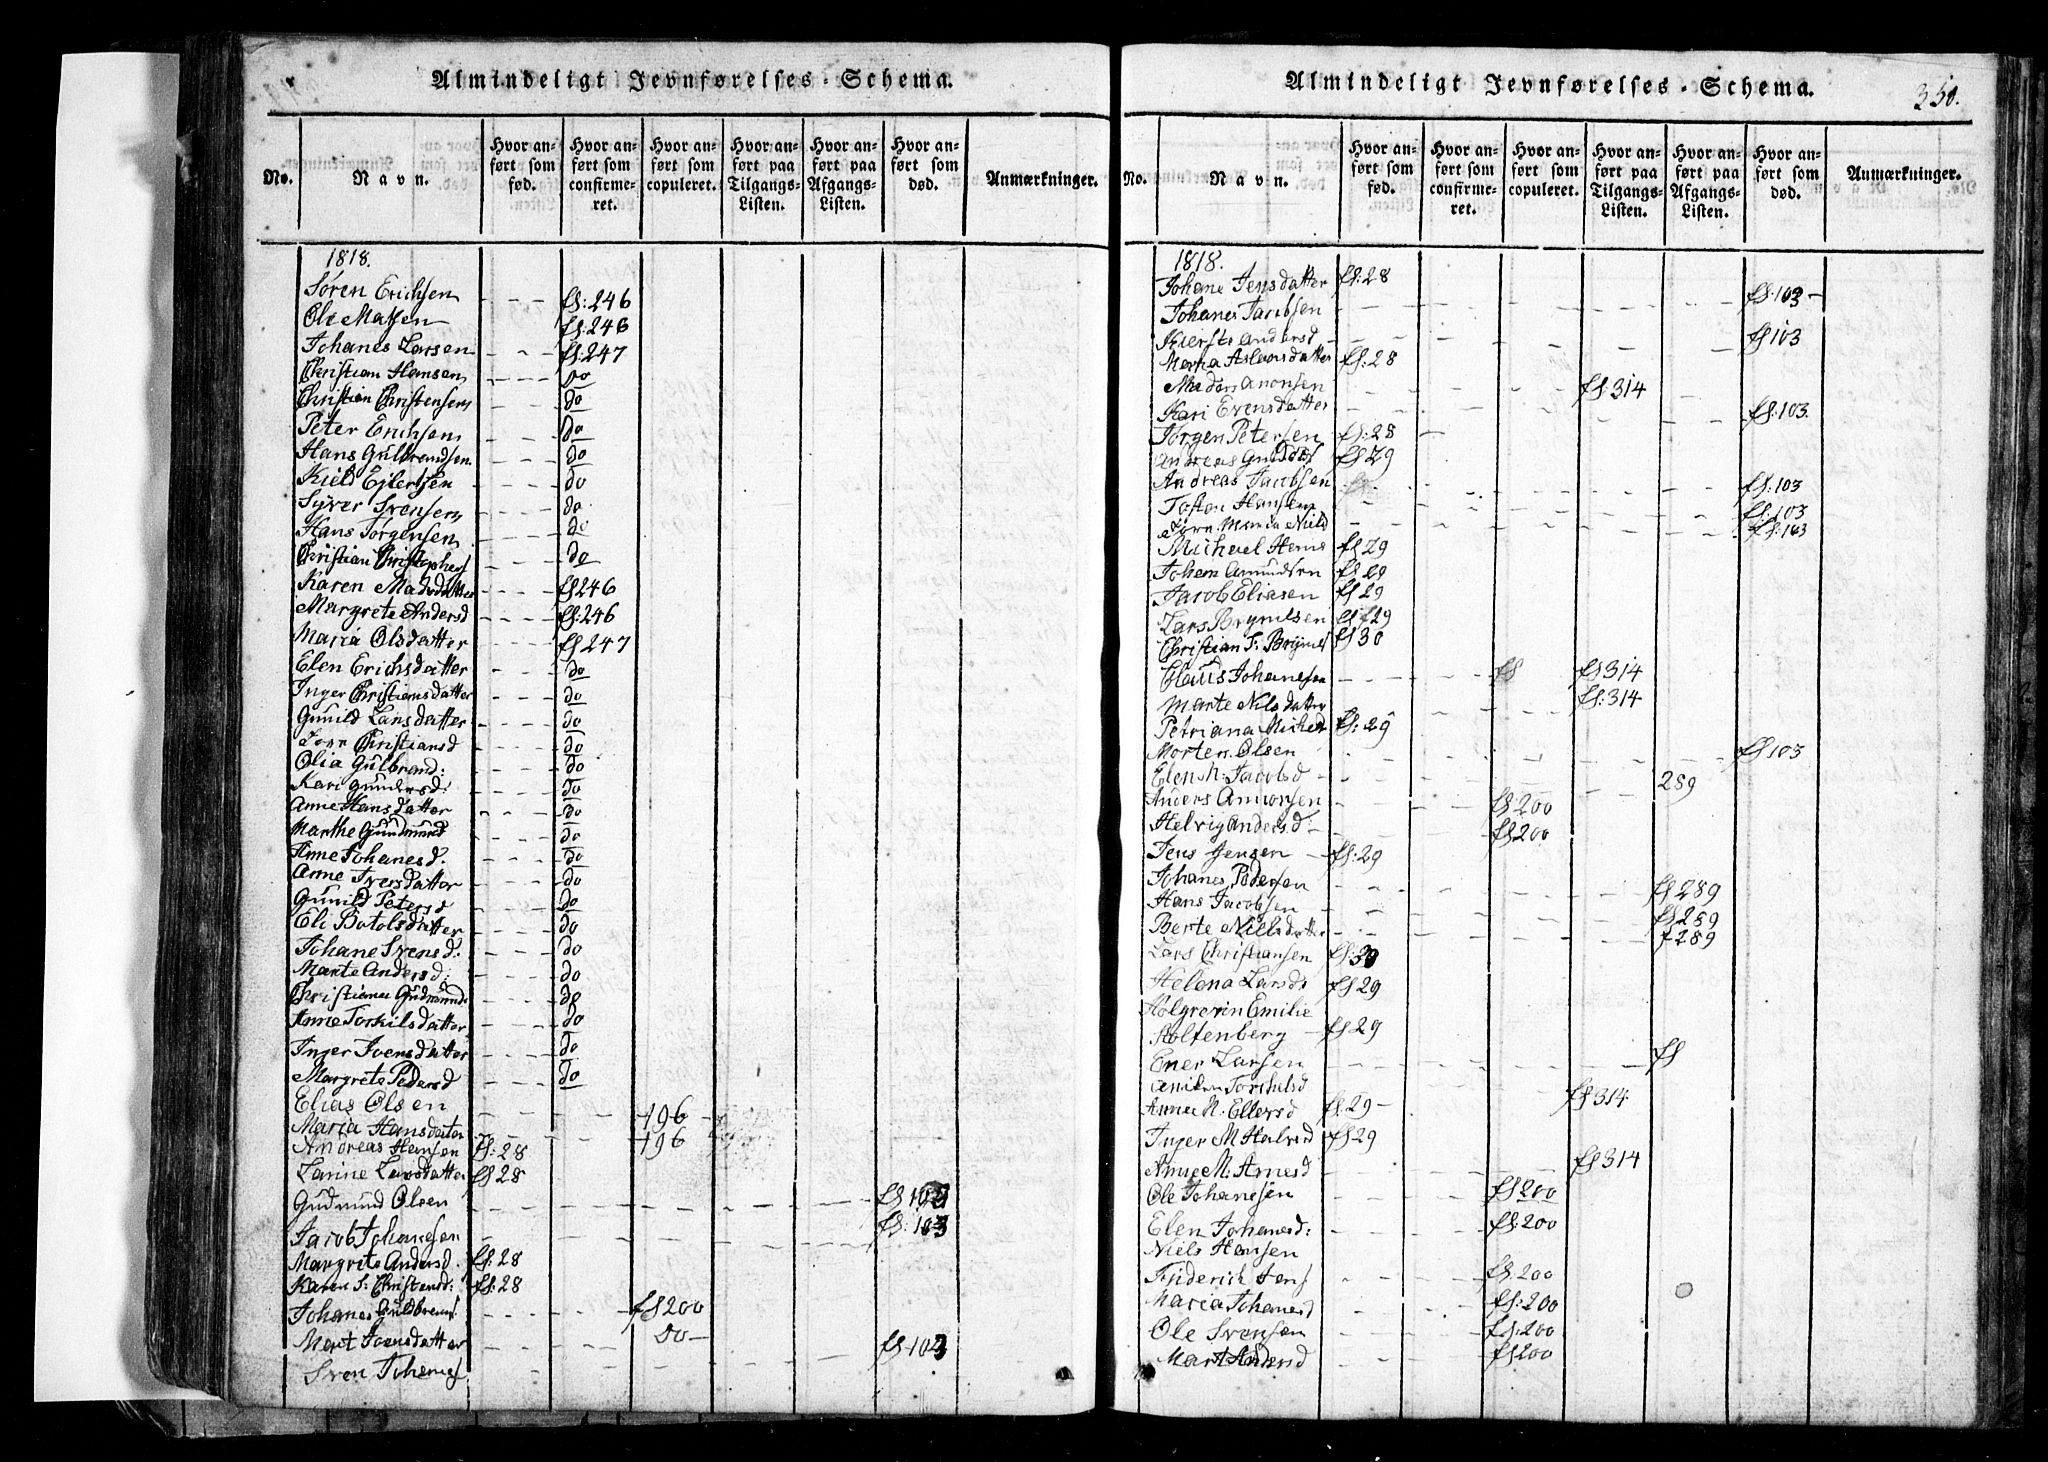 Almindeligt Jevnførelses-Schema.
No.
Navn.
Hvor anført som fød.
Hvor anført som confirmeret.
Hvor anført som copuleret.
Hvor anført paa Tilgangs-Listen.
Hvor anført paa Afgangs-Listen.
Hvor anført som død.
Anmærkninger.
1818.
Søren Erichsen fs:246
Ole Matsen fs:246
Johanes Larsen fs:247
Christian Hansen do
Christian Christensen do
Peter Erichsen do
Hans Gulbrandsen do
Kield Ejlertsen do
Syver Svensen do
Hans Jørgensen do
Christian Christophers do
Karen Madsdatter fs246
Margrete Andersd fs:246
Maria Olsdatter fs247
Elen Erichsdatter do
Inger Christiansdatter do
Gunild Larsdatter do
Jorr Christiansd do
Olia Gulbrand: do
Kari Gundersd: do
Anne Hansdatter do
Marthe Gundmund do
Anne Johanesd. do
Anne Iversdatter do
Gunild Petersd do
Eli Botolsdatter do
Johane Svensd. do
Marte Andersd: do
Christiana Gudmunds do
Anne Torkilsdatter do
Inger Ivensdatter do
Margrete Pedersd do
Elias Olsen 196
Maria Hansdatter 196
Andreas Hansen fs:28
Larine Larsdatter fs28
Gudmund Olsen fs
Jacob Johanesen fs:103
Margrete Andersd. fs:28
Karen S: Christensd: fs:28
Johanes Guldbrands fs200
Mart Ivensdatter do
Sven Johanes fs103
Almindeligt Jevnførelses-Schema.
350.
No.
Navn.
Hvor anført som fød.
Hvor anført som confirmeret.
Hvor anført som copuleret.
Hvor anført paa Tilgangs-Listen.
Hvor anført paa Afgangs-Listen.
Hvor anført som død.
Anmærkninger.
1818.
Johane Jensdatter fs:28
Johanes Jacobsen fs:103
Kiersti Andersd fs103
Maria Aslaksdatter fs:28
Mads Anonsen fs:314
Kari Evensdatter fs:103
Jørgen Petersen fs:28
Andreas fs29
Andreas Jacobsen fs:103
Tosten Hansen fs:103
Jørn Maria Nield fs:103
Michael Hans fs29
Johan Amundsen fs29
Jacob Eliasen fs29
Lars Brynilsen fs29
Christian S: Brynils fs30
Claus Johanesen fs fs314
Marte Nilsdatter fs:314
Petriana Michels fs:29
Morten Olsen fs103
Elen M: Jacobsd 289
Anders Amonsen fs200
Helvig Andersd: fs200
Jens Jensen fs:29
Johanes Pedersen fs289
Hans Jacobsen fs289
Berte Nielsdatter f289
Lars Christiansen fs:30
Helena Larsd fs29
Holgrerin Emilie
Stoltenberg fs29
Ener Larsen fs
Torchilsd fs314
Anna M. Ellersd fs:29
Inger M Halvord fs29
Anne M. Arnesd fs314
Ole Johanesen fs200
Elen Johanesd: fs:200
Niels Hansen
Friderich Jens fs:200
Maria Johanesd fs:200
Ole Svensen fs:200
Mart Andersd fs200